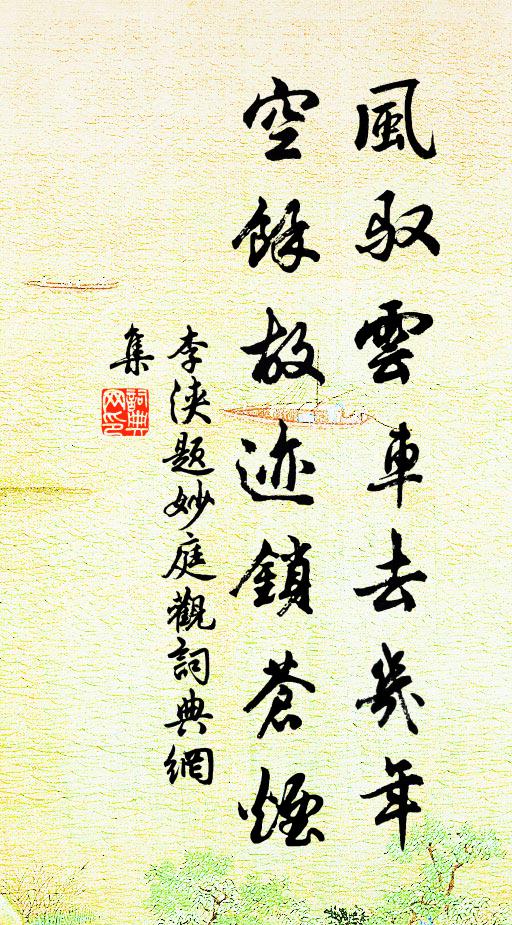 風馭雲車去幾年
空餘故迹鎖蒼煙
李浹題妙庭觀詞典網
集
詞典
网印